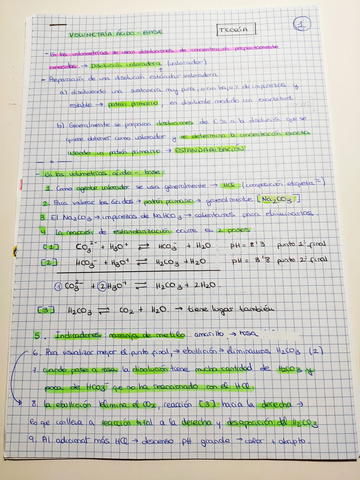 VOLUMETRÍA ÁCIDO - BASE
TEORÍA
1
- En las volumetrías se usan disoluciones de concentración perfectamente
conocidas → Disolución valoradora (valorador)
- Preparación de una disolución estándar valoradora
a) disolviendo una sustancia muy pura, con bajo % de impurezas y
estable → patrón primario, en disolvente medido con exactitud.
b) Generalmente se preparan disoluciones de C. a la disolución que se
quiere obtener como valorador y se determina la concentración exacta
usando un patrón primario → ESTANDARIZACIÓN
- En las volumetrías ácido - base:
1. Como agente valorador se usa generalmente → HCl (composición etiqueta)
2. Para valorar des ácidos → patrón primario → generalmente [Na2CO3]
3. El Na2CO3 → impurezas de NaHCO3 → calentamos para eliminarlas.
4. La reacción de estandarización ocurre en 2 pasos
[1] CO3²⁻ + H3O⁺ ⇌ HCO3⁻ + H2O PH = 8'3 punto 1º final
[2] HCO3⁻ + H3O⁺ ⇌ H2CO3 + H2O PH = 3'8 punto 2º final
① CO3²⁻ + ② H3O⁺ ⇌ H2CO3 + 2H2O
[3] H2CO3 ⇌ CO2 + H2O → tiene lugar también
5. Indicadores: naranja de metilo amarillo → rosa
6. Para visualizar mejor el punto final, → ebullición → eliminamos H2CO3 (2)
7. Cuando pase a rosa la disolución tiene mucha cantidad de H2CO3 y
poca de HCO3⁻ que no ha reaccionado con el HCl
8. La ebullición elimina el CO2, reacción [3] hacia la derecha →
lo que conlleva a reacción total a la derecha y desaparición del H2CO3
9. Al adicionar más HCl → descenso pH grande → color + abrupto